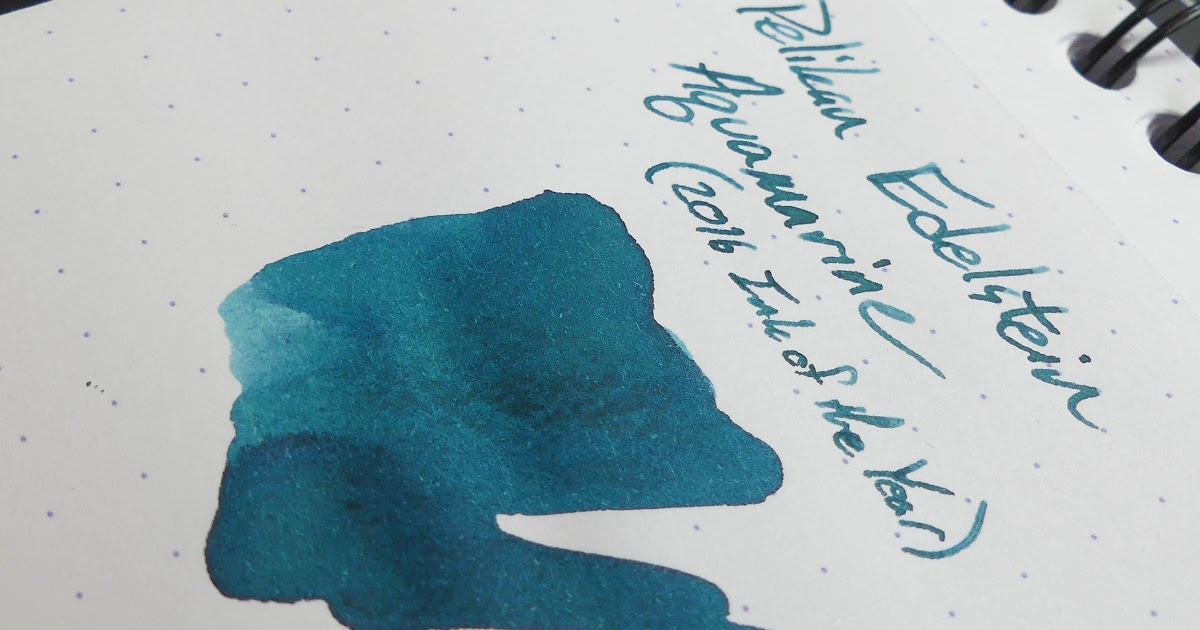 Pelikan Edelstein
Aquamarine
(2016 Ink of the Year)